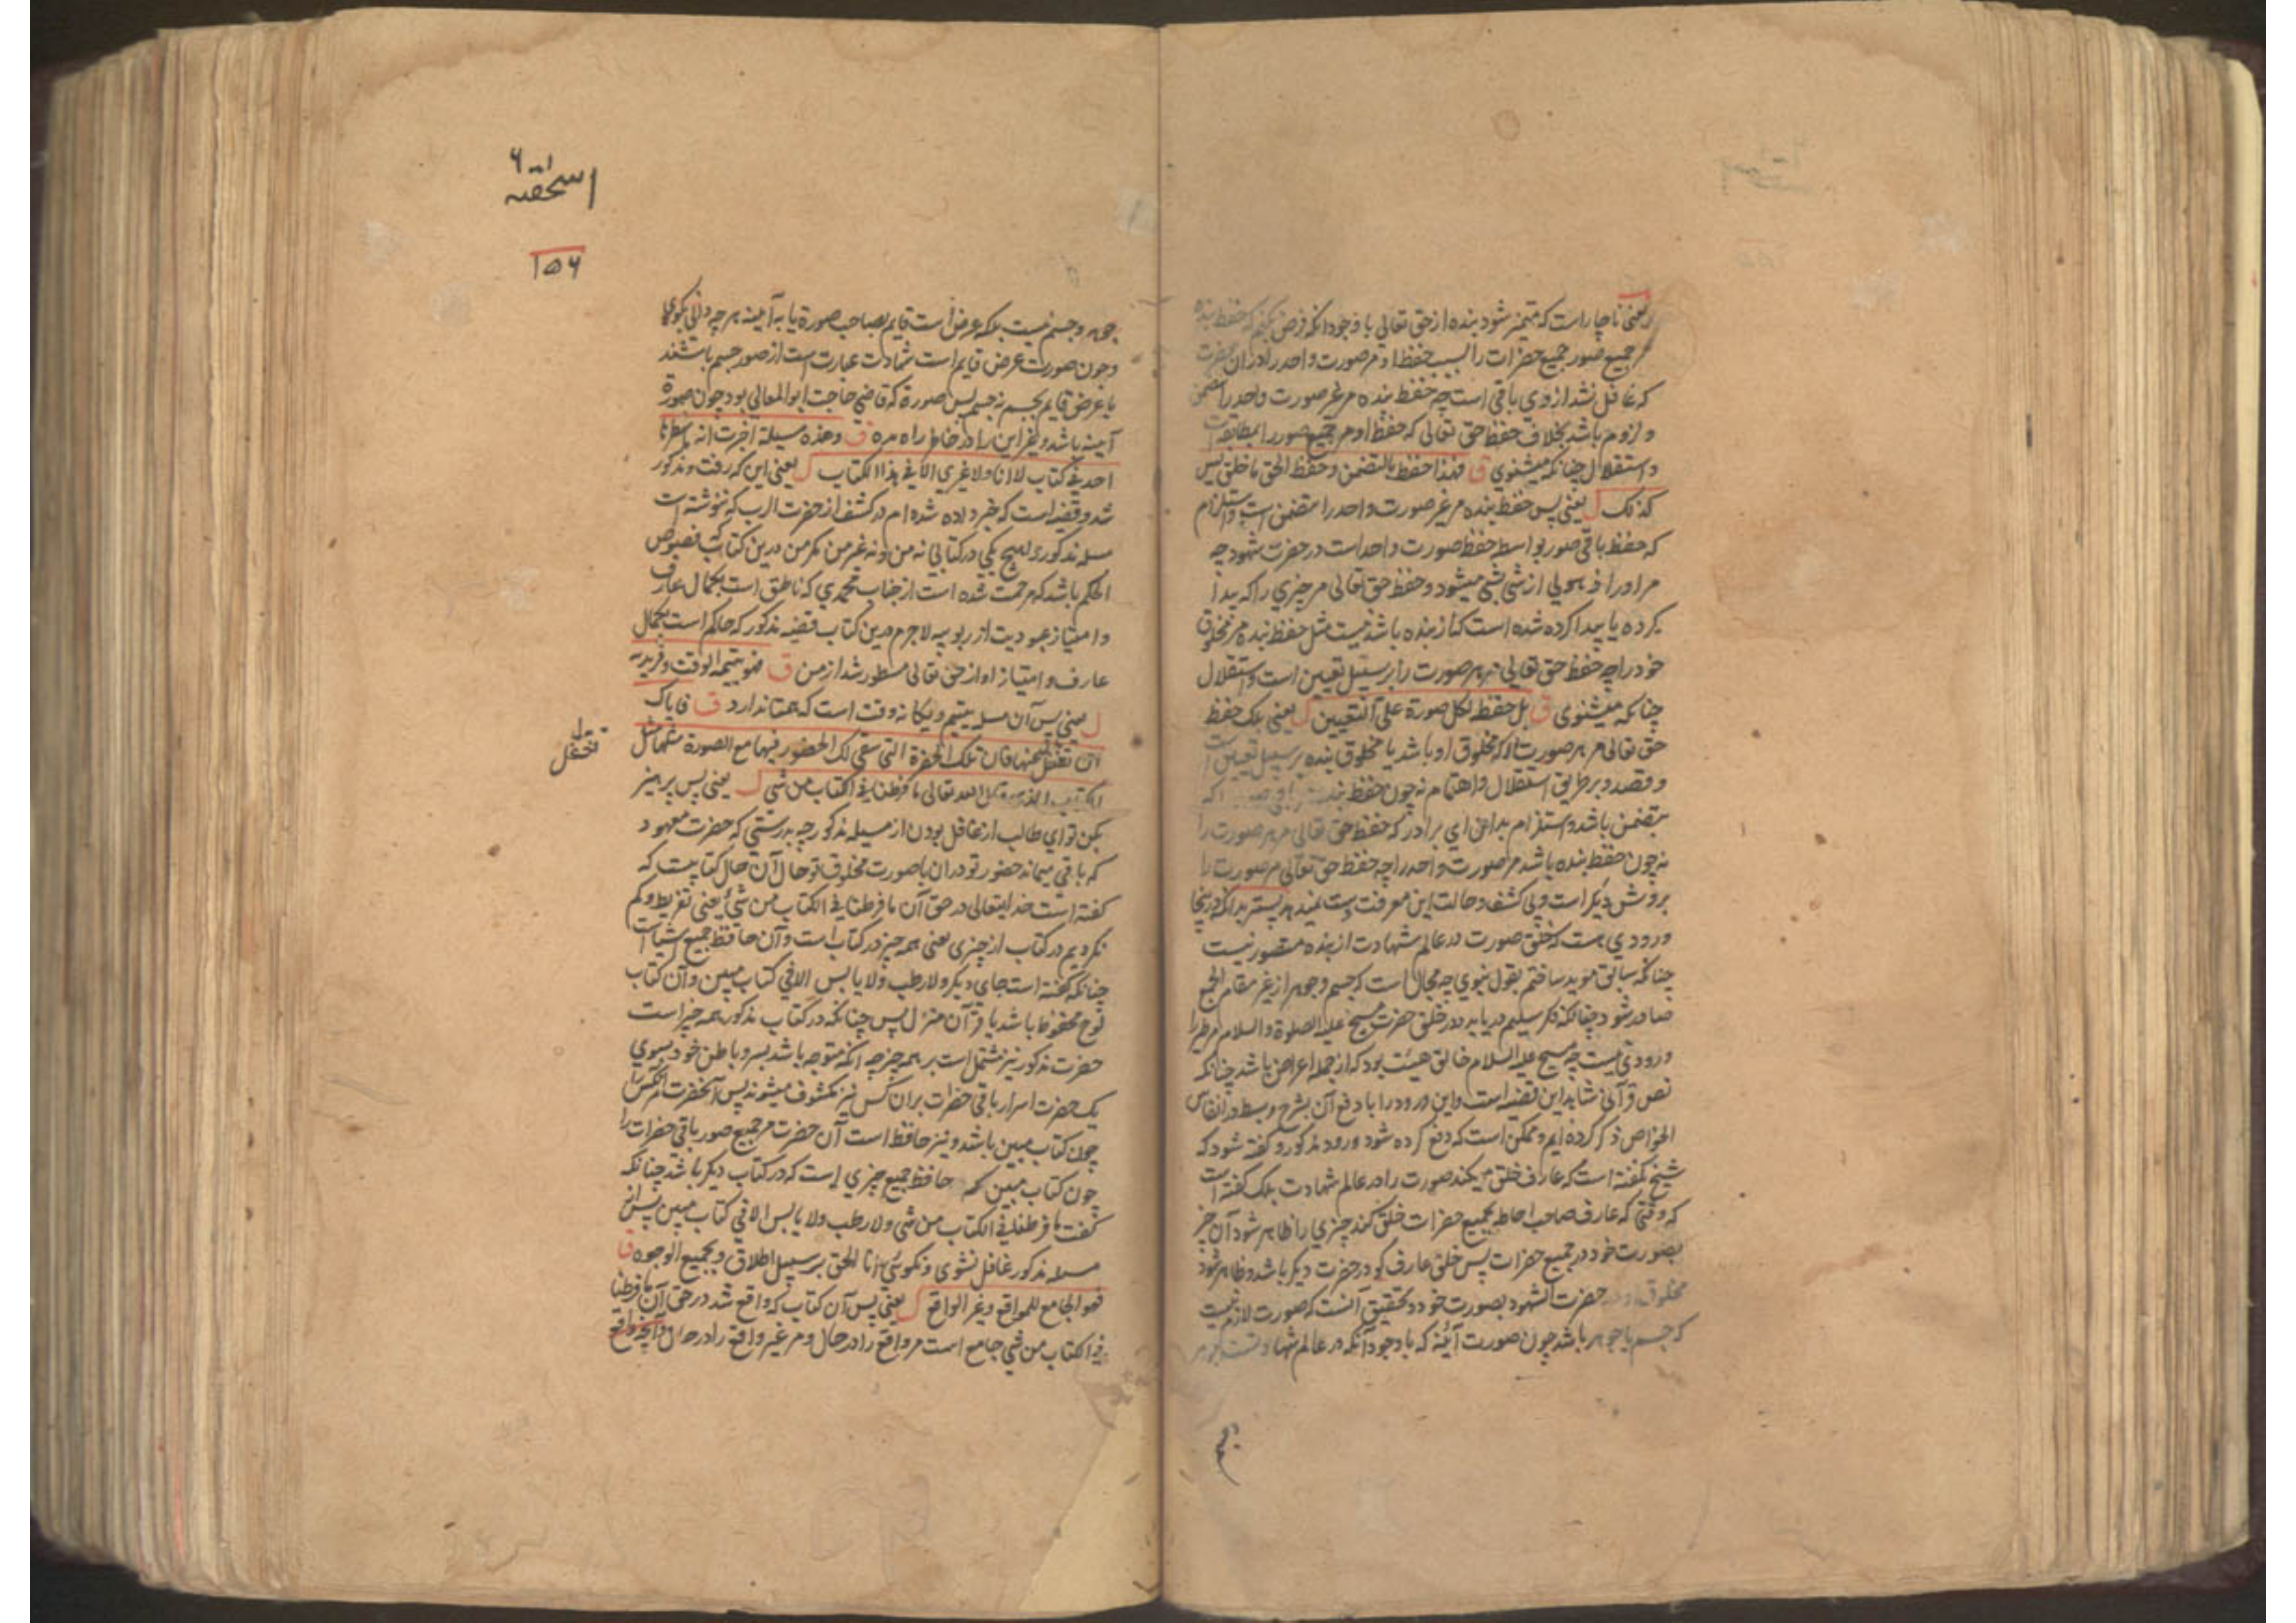 یعنی ناچار است که متمیز شود بنده از حق تعالی با وجود انکه فرض کنیم که حفظ بنده
مر جمیع صور جمیع حضرات را بسبب حفظ او مر صورت واحد را دران حضرت
که غافل نشد از وی باقی است چه حفظ بنده مر غیر صورت واحد را بتضمن
و لزوم باشد بخلاف حفظ حق تعالی که حفظ او مر جمیع صور را بمطابقت است
و استقلال چنانکه میشنوی ق فهذا حفظ بالتضمن وحفظ الحق ما خلق لیس
کذلک ل یعنی پس حفظ بنده مر غیر صورت واحد را متضمن است واستلزام
که حفظ باقی صور بواسطه حفظ صورت واحد است در حضرت شهود چه
مر او را ذهولی از شی بشی میشود و حفظ حق تعالی مر چیزی را که پیدا
کرده یا پیدا کرده شده است کنار بنده باشد نیست مثل حفظ بنده مر مخلوق
خود را چه حفظ حق تعالی مر هر صورت را بر سبیل تعیین است و استقلال
چنانکه میشنوی ق بل حفظه لکل صورة علی التعیین ل یعنی بلکه حفظ
حق تعالی مر هر صورت را که مخلوق او باشد یا مخلوق بنده بر سبیل تعیین است
و قصد و بر طریق استقلال و اهتمام نه چون حفظ بنده
بتضمن باشد و استلزام بدان ای برادر که حفظ حق تعالی مر هر صورت را
نه چون حفظ بنده باشد مر صورت واحد را چه حفظ حق تعالی مر صورت را
بروش دیگر است و بی کشف و حالت این معرفت دست نمیدهد پستر بدانکه درینجا
ورودی هست که خلق صورت در عالم شهادت از بنده متصور نیست
چنانکه سابق موید ساختم بقول نبوی چه مجال است که جسم و جوهر از غیر مقام الجمع
صادر شود چنانکه فکر سلیم دریابد و در خلق حضرت مسیح علیه الصلوة والسلام مر طیر را
ورودی نیست چه مسیح علیه السلام خالق هیئت بود که از جمله اعراض باشد چنانکه
نص قرآنی شاهد این قضیه است و این ورود را با دفع آن بشرح و بسط در انفاس
الخواص ذکر کرده ایم و ممکن است که دفع کرده شود ورود مذکور و گفته شود که
شیخ نگفته است که عارف خلق میکند صورت را در عالم شهادت بلکه گفته است
که وقتی که عارف صاحب احاطه بجمیع حضرات خلق کند چیزی را ظاهر شود آن چیز
بصورت خود در جمیع حضرات پس خلق عارف گو در حضرت دیگر باشد و ظاهر شود
مخلوق او در حضرت الشهود بصورت خود و تحقیق آنست که صورت لازم نیست
که جسم یا جوهر باشد چون صورت آئینه که با وجود آنکه در عالم شهادتست جوهر
جوهر
اسحقیه ۶
۱۵۶
جوهر و جسم نیست بلکه عرض است قایم بصاحب صورة یا به آئینه هر چه دانی بگوی
و چون صورت عرض قایم است شهادت عبارت است از صور جسم باشند
یا عرض قایم بجسم نه جسم پس صورة که قاضی حاجت ابو المعالی بود چون صورة
آئینه باشد و غیر این را در خاطر راه مده ق وهذه مسیلة اخرت انه ما سطرها
احد فی کتاب لا انا ولا غیری الا فی هذا الکتاب ل یعنی این که رفت و مذکور
شد و قضیه است که خبر داده شده ام در کشف از حضرت الرب که ننوشته است
مسله مذکور را هیچ یکی در کتابی نه من و نه غیر من مگر من درین کتاب که فصوص
الحکم باشد که مرحمت شده است از جناب محمدی که ناطق است بکمال عارف
و امتیاز عبودیت از ربوبیه لاجرم درین کتاب قضیه مذکور که حاکم است بکمال
عارف و امتیاز او از حق تعالی مسطور شد از من ق فهو یتیمة الوقت وفریده
ل یعنی پس آن مسله یتیم و یگانه وقت است که همتا ندارد ق فایاک
ان تغفل عنها فان تلک الحضرة التی یبقی لک الحضور فیها مع الصورة مثلها مثل
تغفل
الکتاب الذی قال الله تعالی ما فرطنا فی الکتاب من شی ل یعنی پس پرهیز
بکن تو ای طالب از غافل بودن از مسیله مذکور چه بدرستی که حضرت معهود
که باقی میماند حضور تو دران با صورت مخلوق تو حال آن حال کتابیست که
گفته است خدایتعالی در حق آن ما فرطنا فی الکتاب من شی یعنی تفریط و کم
نکردیم در کتاب از چیزی یعنی همه چیز در کتاب است و آن حافظ جمیع اشیا است
چنانکه گفته است جای دیگر ولا رطب ولا یابس الا فی کتاب مبین و آن کتاب
لوح محفوظ باشد یا قرآن منزل پس چنانکه در کتاب مذکور همه چیز است
حضرت مذکور نیز مشتمل است بر همه چیز چه انکه متوجه باشد بسر و باطن خود بسوی
یک حضرت اسرار باقی حضرات بران کس نیز مکشوف میشوند پس آنحضرت انکس را
چون کتاب مبین باشد و نیز حافظ است آن حضرت مر جمیع صور باقی حضرات را
چون کتاب مبین که حافظ جمیع چیزی است که در کتاب دیگر باشد چنانکه
گفت ما فرطنا فی الکتاب من شی ولا رطب ولا یابس الا فی کتاب مبین پس از
مسله مذکور غافل نشوی و نگوئی انا الحق بر سبیل اطلاق و بجمیع الوجوه ق
فهو الجامع للواقع وغیر الواقع ل یعنی پس آن کتاب که واقع شد در حق آن ما فرطنا
فی الکتاب من شی جامع است مر واقع را در حال و مر غیر واقع را در حال و آنچه واقع